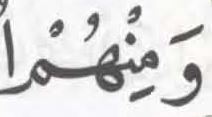 وَمِنْهُمْ ا